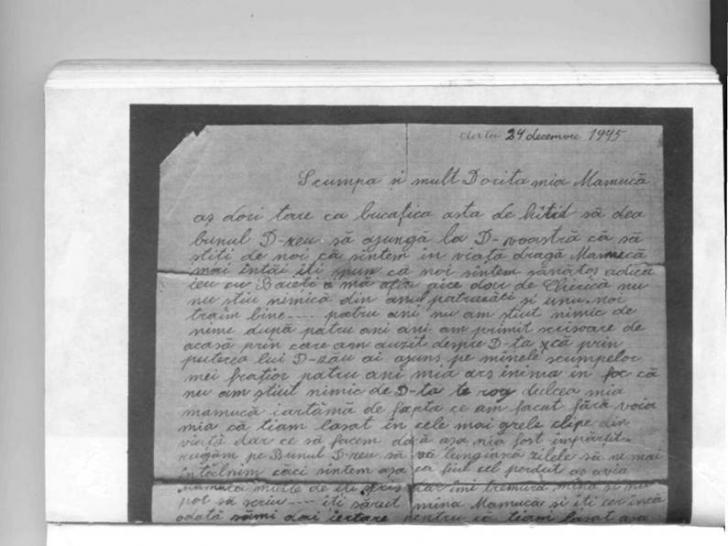 24 decemvre 1945
Scumpa și mult Dorita mia Mamucă
aș dori tare ca bucațica asta de hîtid să dea
bunul D-zeu să ajungă la D-voastră că să
stiți de noi că sintem in viață dragă Mamucă
mai întăi iti spun că noi sintem sănătos adică
ieu cu a mă afla aice dar de Chirică nu
nu stiu nimică din anul patruzăci și unu noi
traim bine---- patru ani nu am stiut nimic de
nime după patru ani ani am primit scrisoare de
acasă prin care am auzit despre D-ta că prin
puterea lui D-zău ai ajuns pe minele scumpelor
mei frațior patru ani mia ars inima in foc că
nu am stiut nimic de D-ta te rog dulcea mia
mamucă iartămă de fapta ce am facut fără voia
mia că tiam lasat in cele mai grele clipe din
viață dar ce să facem dacă așa nia fost impărțit.
rugăm pe Bunul D-zeu să vă lungiască zilele să ne mai
intălnim căci sintem așa ca fiul cel perdut aș avia
mamucă multe de iti scris dar imi tremură mina și nu
pot să scriu--- iti sărut mina Mamucă și iti cer incă
odată sămi dai iertare pentru că tiam lasat așa